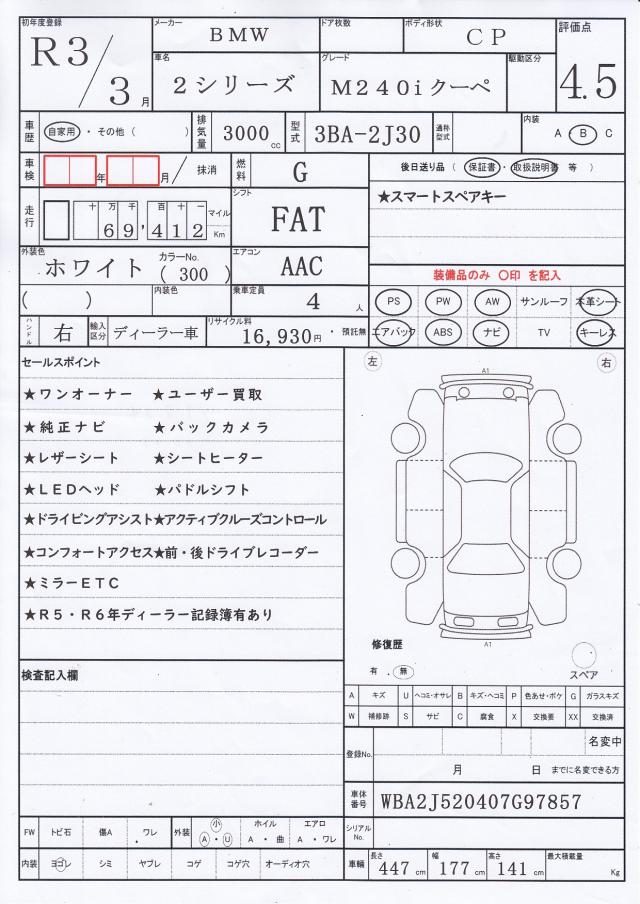 初年度登録 R3/3月
メーカー BMW
ドア枚数
ボディ形状 CP
評価点 4.5
車名 2シリーズ
グレード M240iクーペ
駆動区分
車歴 自家用・その他（ ）
排気量 3000cc
型式 3BA-2J30
通称型式
内装 A・B C
車検 年 月/ 抹消
燃料 G
後日送り品（保証書・取扱説明書 等）
走行 十万千百十一 69,412 マイル Km
シフト FAT
★スマートスペアキー
外装色 ホワイト カラーNo.（300）
エアコン AAC
装備品のみ 〇印 を記入
（ ）
内装色
乗車定員 4人
PS PW AW サンルーフ 本革シート
ハンドル 右
輸入区分 ディーラー車
リサイクル料 16,930円・預託無
エアバック ABS ナビ TV キーレス
セールスポイント
★ワンオーナー ★ユーザー買取
★純正ナビ ★バックカメラ
★レザーシート ★シートヒーター
★LEDヘッド ★パドルシフト
★ドライビングアシスト★アクティブクルーズコントロール
★コンフォートアクセス★前・後ドライブレコーダー
★ミラーETC
★R5・R6年ディーラー記録簿有あり
左 右
A1
A1
修復歴
有 . 無
スペア
検査記入欄
A キズ U ヘコミ・オサレ B キズ・ヘコミ P 色あせ・ボケ G ガラスキズ
W 補修跡 S サビ C 腐食 X 交換要 XX 交換済
登録No. 名変中
月 日 までに名変できる方
車体番号 WBA2J520407G97857
FW トビ石 傷A ワレ
外装 小 A・U
ホイル A・曲
エアロ A・ワレ
シリアルNo.
内装 ヨゴレ シミ ヤブレ コゲ コゲ穴 オーディオ穴
車輌 長さ 447cm 幅 177cm 高さ 141cm 最大積載量 Kg